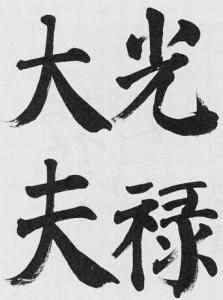 光禄
大夫